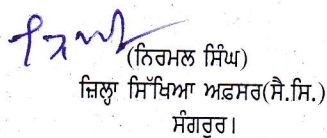 (ਨਿਰਮਲ ਸਿੰਘ)
ਜ਼ਿਲ੍ਹਾ ਸਿੱਖਿਆ ਅਫ਼ਸਰ(ਸੈ.ਸਿ.)
ਸੰਗਰੂਰ।